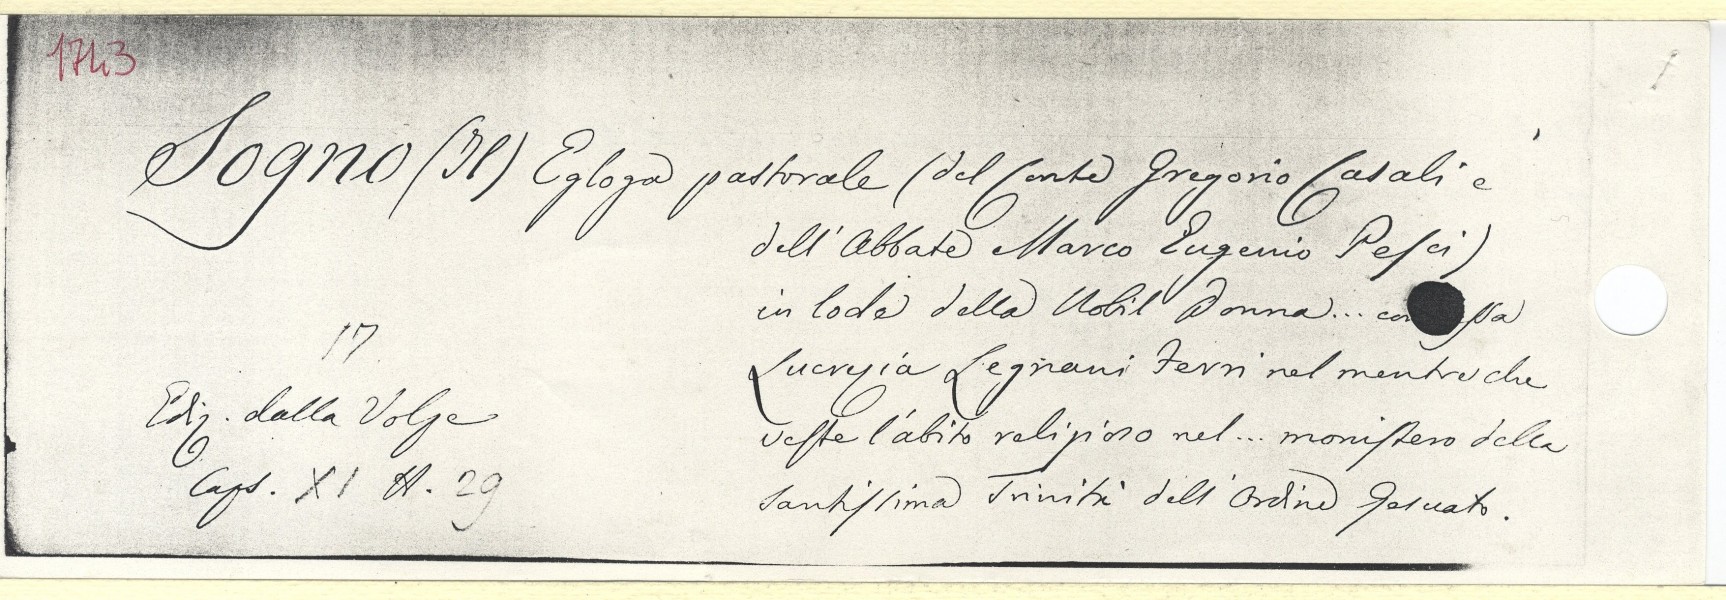 1743
Sogno (Il) Egloga pastorale (del Conte Gregorio Casali e
dell' Abbate Marco Eugenio Pesci)
in lode della Nobil Donna... con essa
Lucrezia Legnani Ferri nel mentre che
17
Ediz. dalla Volpe
veste l'abito religioso nel... monistero della
Caps. XI H. 29
santissima Trinità dell' Ordine Gesuato.